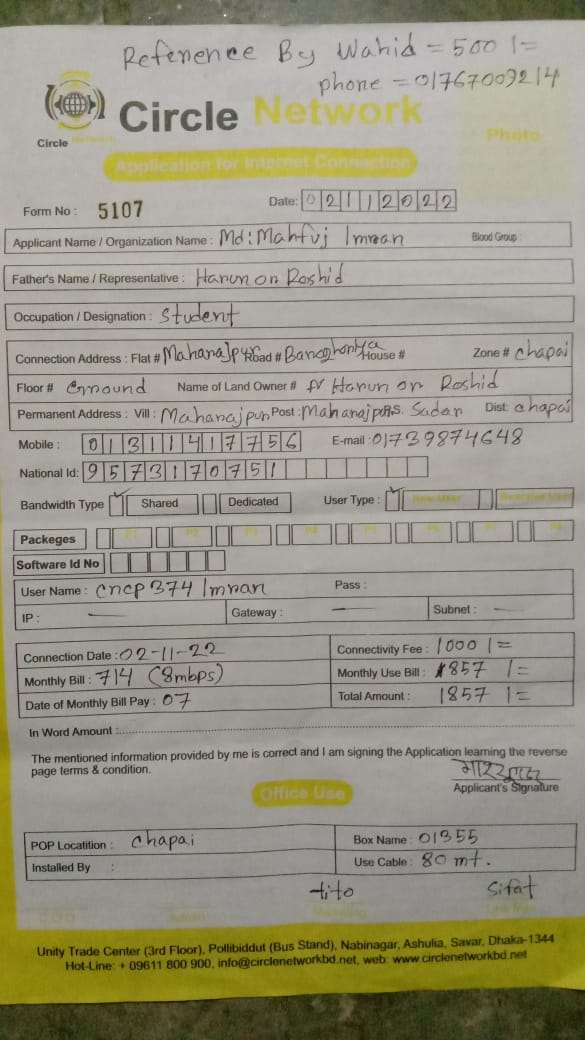 Reference By Wahid = 500/=
phone = 01767009214
Circle Network
Circle Network
Photo
Application for Internet Connection
Form No : 5107
Date: 02112022
Applicant Name / Organization Name : Md: Mahfuj Imran Blood Group :
Father's Name / Representative : Harun or Roshid
Occupation / Designation : Student
Connection Address : Flat # Maharajpur Road # House # Zone # chapai
Floor # Ground Name of Land Owner # Harun or Roshid
Permanent Address : Vill : Maharajpur Post : Maharajpur P.S. Sadar Dist: chapai
Mobile : 01311417756 E-mail : 01739874648
National Id: 9573170751
Bandwidth Type ✓ Shared Dedicated User Type : ✓ New User
Packeges P1 P2 P3 P4 P5 P6 P7 P8
Software Id No
User Name : cncp374 Imran Pass :
IP : — Gateway : — Subnet : —
Connection Date : 02-11-22 Connectivity Fee : 1000/=
Monthly Bill : 714 (8mbps) Monthly Use Bill : 857/=
Date of Monthly Bill Pay : 07 Total Amount : 1857/=
In Word Amount :
The mentioned information provided by me is correct and I am signing the Application learning the reverse
page terms & condition.
Applicant's Signature
Office Use
POP Locatition : chapai Box Name : 01355
Installed By : Use Cable : 80 mt.
tito Sifat
Admin Marketing
Unity Trade Center (3rd Floor), Pollibiddut (Bus Stand), Nabinagar, Ashulia, Savar, Dhaka-1344
Hot-Line: + 09611 800 900, info@circlenetworkbd.net, web: www.circlenetworkbd.net